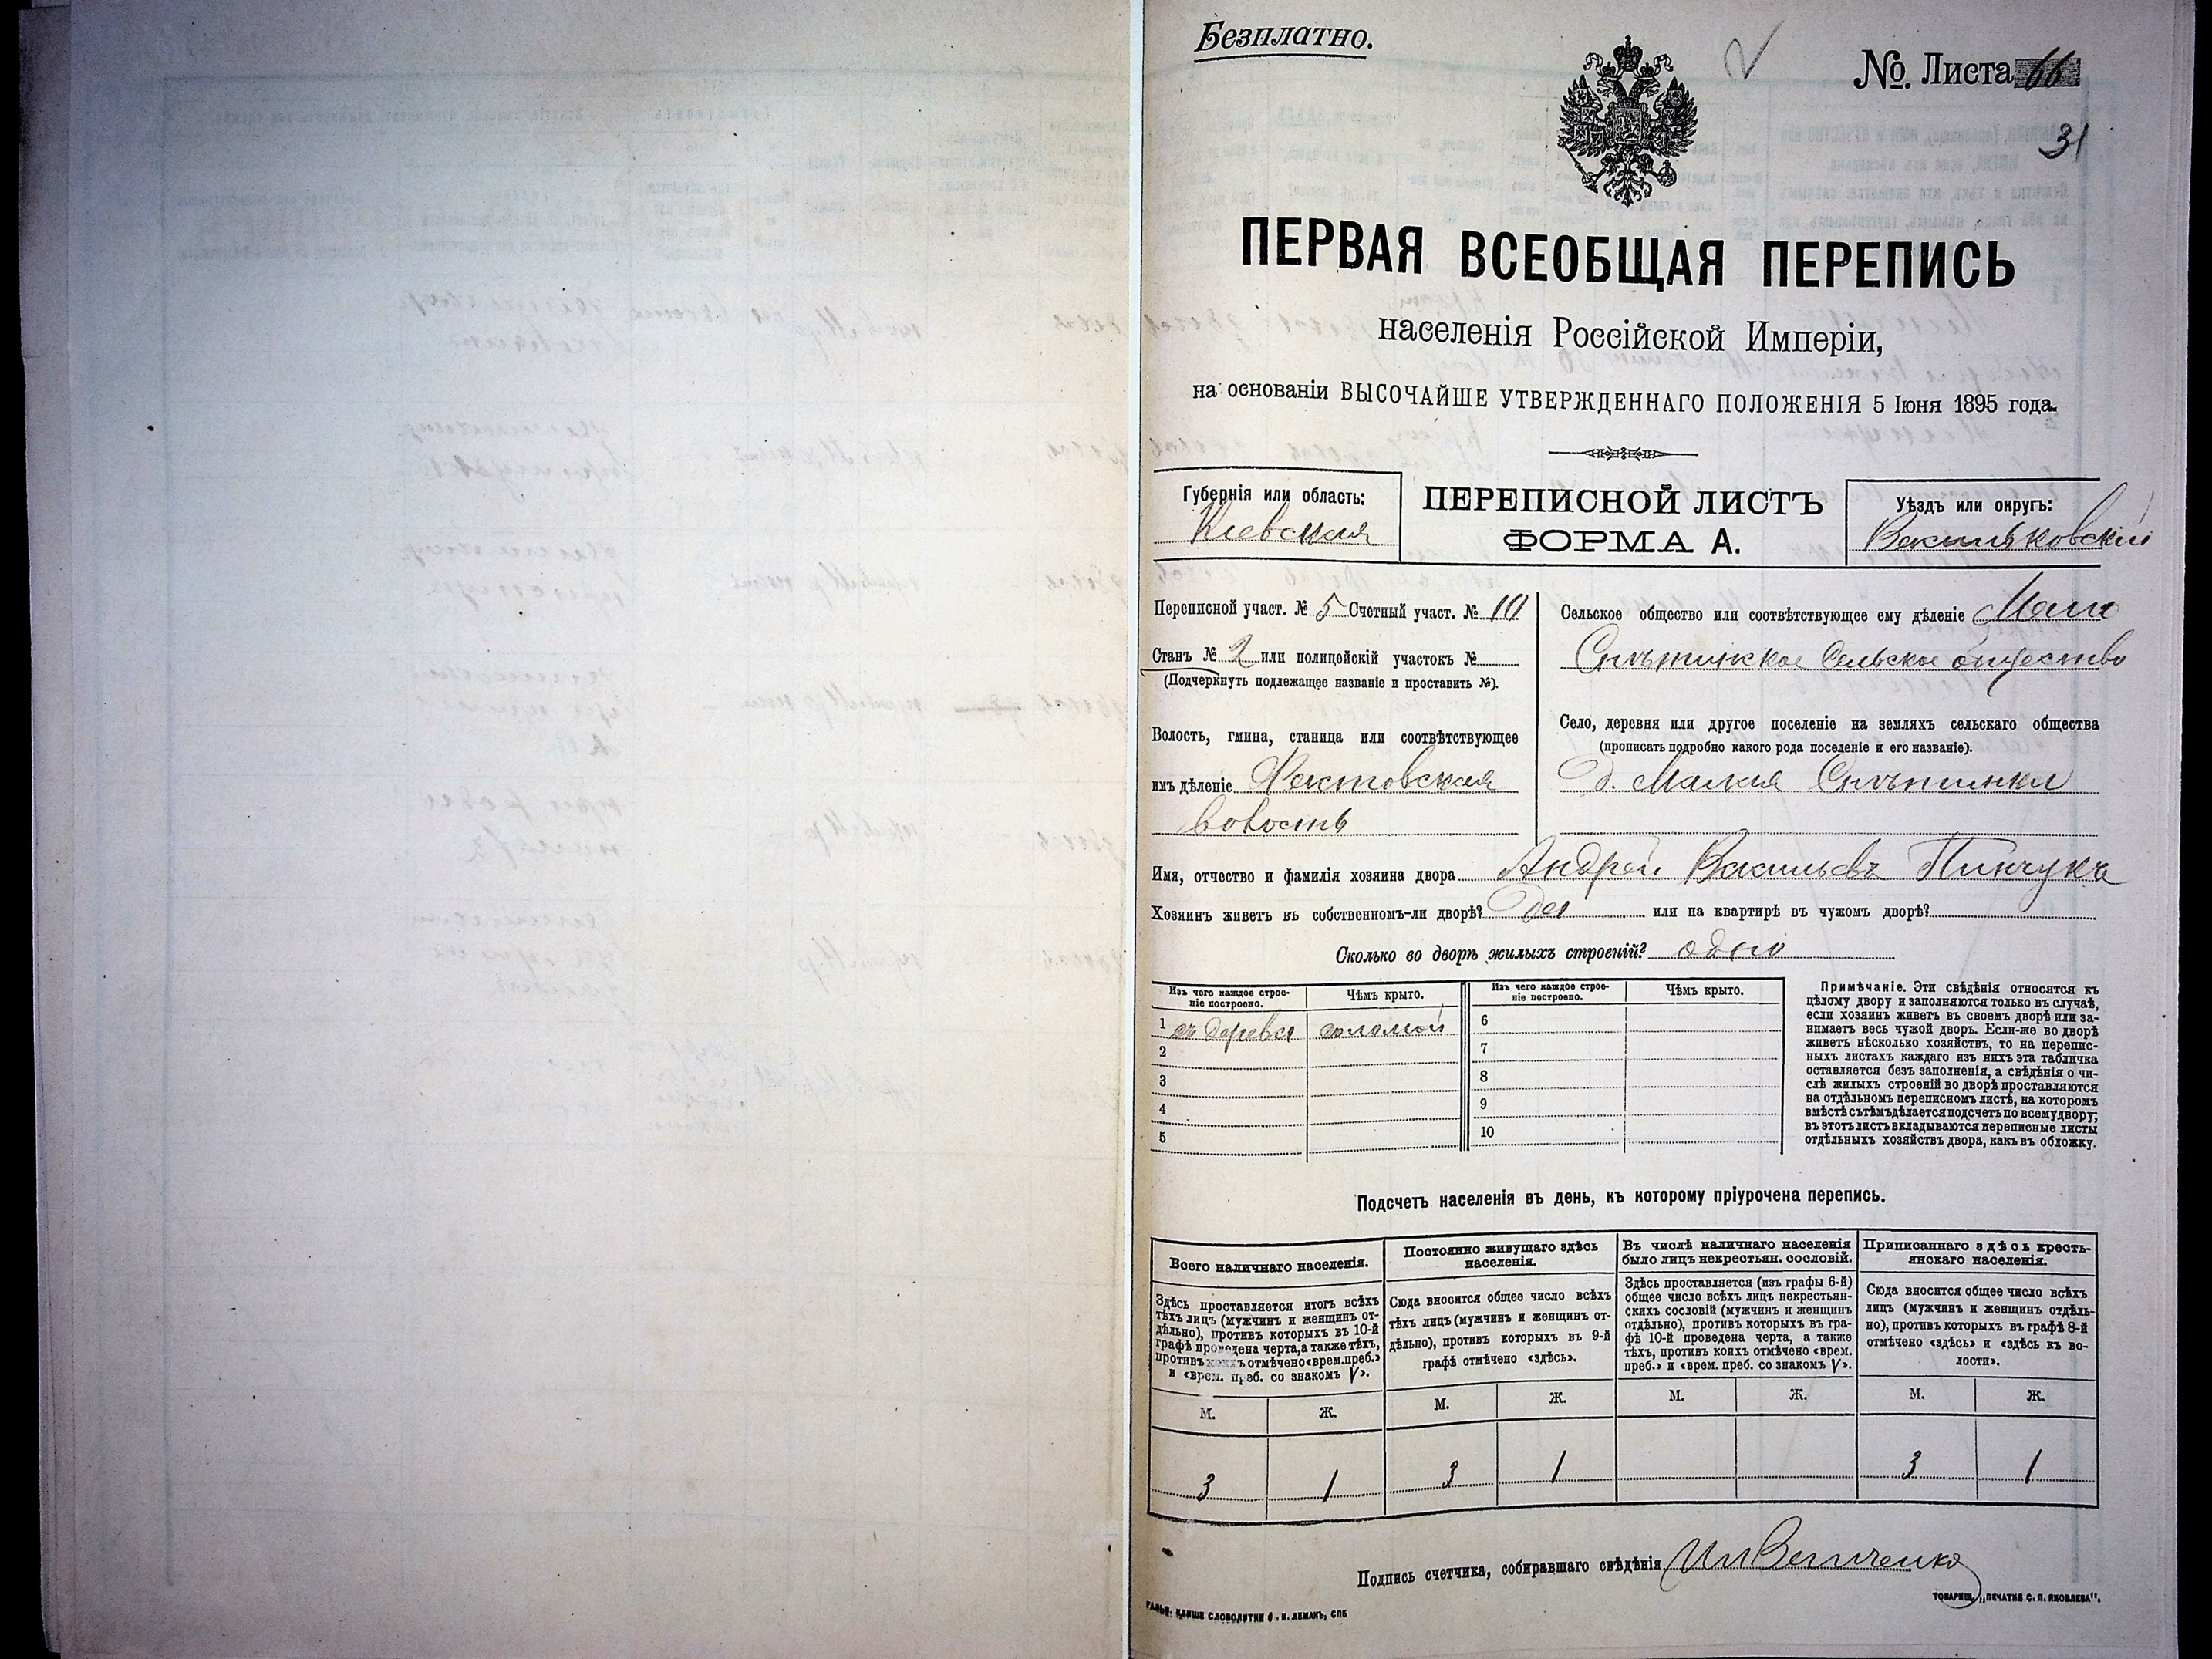 Безплатно.
№ Листа 66
31
ПЕРВАЯ ВСЕОБЩАЯ ПЕРЕПИСЬ
населенія Россійской Имперіи,
на основаніи ВЫСОЧАЙШЕ УТВЕРЖДЕННАГО ПОЛОЖЕНІЯ 5 Іюня 1895 года.
Губернія или область:
Кіевская
ПЕРЕПИСНОЙ ЛИСТЪ
ФОРМА А.
Уѣздъ или округъ:
Васильковскій
Переписной участ. № 5 Счетный участ. № 10
Станъ № 2 или полицейскій участокъ №
(Подчеркнуть подлежащее названіе и проставить №).
Волость, гмина, станица или соотвѣтствующее
имъ дѣленіе Фастовская
волость
Сельское общество или соотвѣтствующее ему дѣленіе Мало
Снѣтинское Сельское общество
Село, деревня или другое поселеніе на земляхъ сельскаго общества
(прописать подробно какого рода поселеніе и его названіе).
д. Малая Снѣтинка
Имя, отчество и фамилія хозяина двора Андрей Васильевъ Пинчукъ
Хозяинъ живетъ въ собственномъ-ли дворѣ? да или на квартирѣ въ чужомъ дворѣ?
Сколько во дворѣ жилыхъ строеній? одно
Изъ чего каждое строе-
ніе построено.
Чѣмъ крыто.
1 съ дерева соломой
2
3
4
5
Изъ чего каждое строе-
ніе построено.
Чѣмъ крыто.
6
7
8
9
10
Примѣчаніе. Эти свѣдѣнія относятся къ
цѣлому двору и заполняются только въ случаѣ,
если хозяинъ живетъ въ своемъ дворѣ или за-
нимаетъ весь чужой дворъ. Если-же во дворѣ
живетъ нѣсколько хозяйствъ, то на перепис-
ныхъ листахъ каждаго изъ нихъ эта табличка
оставляется безъ заполненія, а свѣдѣнія о чи-
слѣ жилыхъ строеній во дворѣ проставляются
на отдѣльномъ переписномъ листѣ, на которомъ
вмѣстѣ съ тѣмъ дѣлается подсчетъ по всему двору;
въ этотъ листъ вкладываются переписные листы
отдѣльныхъ хозяйствъ двора, какъ въ обложку.
Подсчетъ населенія въ день, къ которому пріурочена перепись.
Всего наличнаго населенія.
Здѣсь проставляется итогъ всѣхъ
тѣхъ лицъ (мужчинъ и женщинъ от-
дѣльно), противъ которыхъ въ 10-й
графѣ проведена черта, а также тѣхъ,
противъ коихъ отмѣчено «врем. преб.»
и «врем. преб. со знакомъ V».
М. Ж.
3 1
Постоянно живущаго здѣсь
населенія.
Сюда вносится общее число всѣхъ
тѣхъ лицъ (мужчинъ и женщинъ от-
дѣльно), противъ которыхъ въ 9-й
графѣ отмѣчено «здѣсь».
М. Ж.
3 1
Въ числѣ наличнаго населенія
было лицъ некрестьян. сословій.
Здѣсь проставляется (изъ графы 6-й)
общее число всѣхъ лицъ некрестьян-
скихъ сословій (мужчинъ и женщинъ
отдѣльно), противъ которыхъ въ гра-
фѣ 10-й проведена черта, а также
тѣхъ, противъ коихъ отмѣчено «врем.
преб.» и «врем. преб. со знакомъ V».
М. Ж.
Приписаннаго здѣсь кресть-
янскаго населенія.
Сюда вносится общее число всѣхъ
лицъ (мужчинъ и женщинъ отдѣль-
но), противъ которыхъ въ графѣ 8-й
отмѣчено «здѣсь» и «здѣсь къ во-
лости».
М. Ж.
3 1
Подпись счетчика, собиравшаго свѣдѣнія Ил Величенко
КЛИШЕ СЛОВОЛИТНИ О. И. ЛЕМАНЪ, СПБ
ТОВАРИЩ. „ПЕЧАТНЯ С. П. ЯКОВЛЕВА".